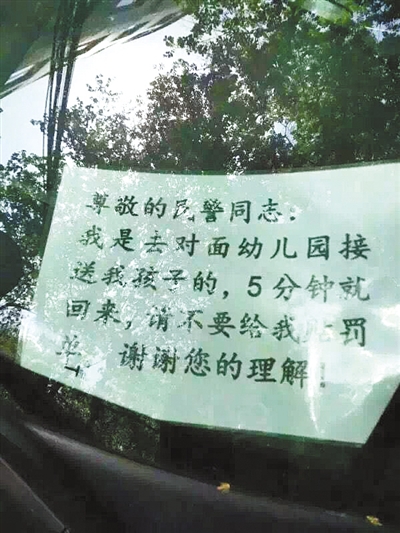 尊敬的民警同志：
我是去对面幼儿园接
送我孩子的，5分钟就
回来，请不要给我贴罚
单，谢谢您的理解！